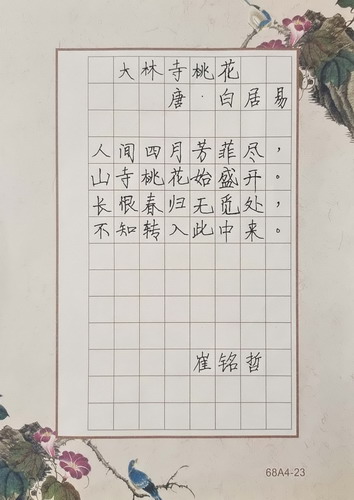 大林寺桃花
唐·白居易
人间四月芳菲尽，
山寺桃花始盛开。
长恨春归无觅处，
不知转入此中来。
崔铭哲
68A4-23